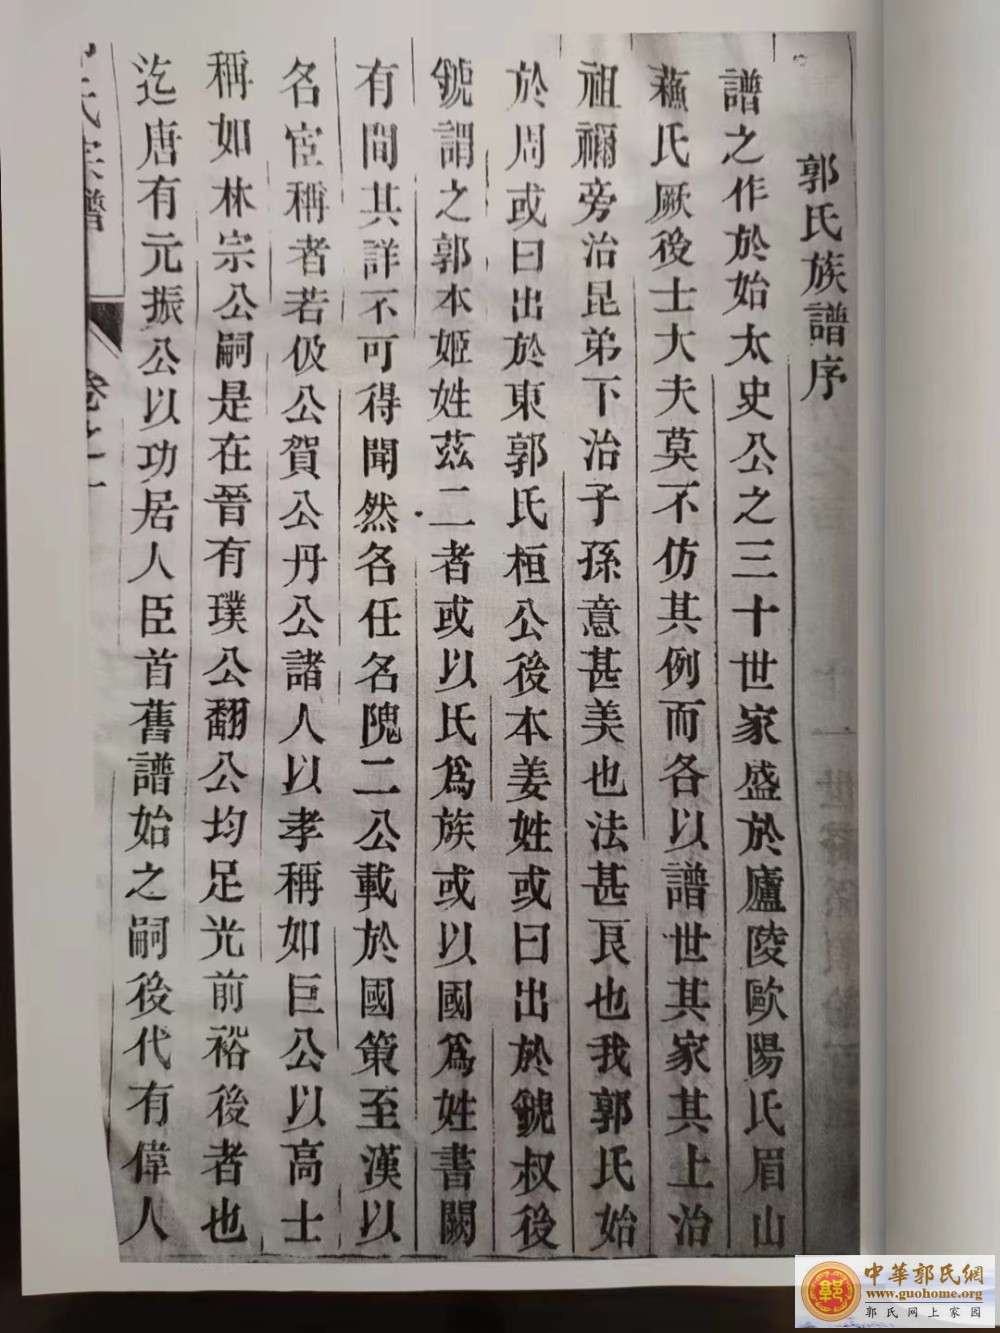 郭氏族譜序
譜之作於始太史公之三十世家盛於廬陵歐陽氏眉山
蘓氏厥後士大夫莫不仿其例而各以譜世其家其上治
祖禰旁治昆弟下治子孫意甚美也法甚良也我郭氏始
於周或曰出於東郭氏桓公後本姜姓或曰出於虢叔後
虢謂之郭本姬姓茲二者或以氏爲族或以國爲姓書闕
有間其詳不可得聞然名任名隗二公載於國策至漢以
名宦稱者若伋公賀公丹公諸人以孝稱如巨公以高士
稱如林宗公嗣是在晉有璞公翻公均足光前裕後者也
迄唐有元振公以功居人臣首舊譜始之嗣後代有偉人
氏宗譜
卷之一
中華郭氏網
www.guohome.org
郭氏网上家园